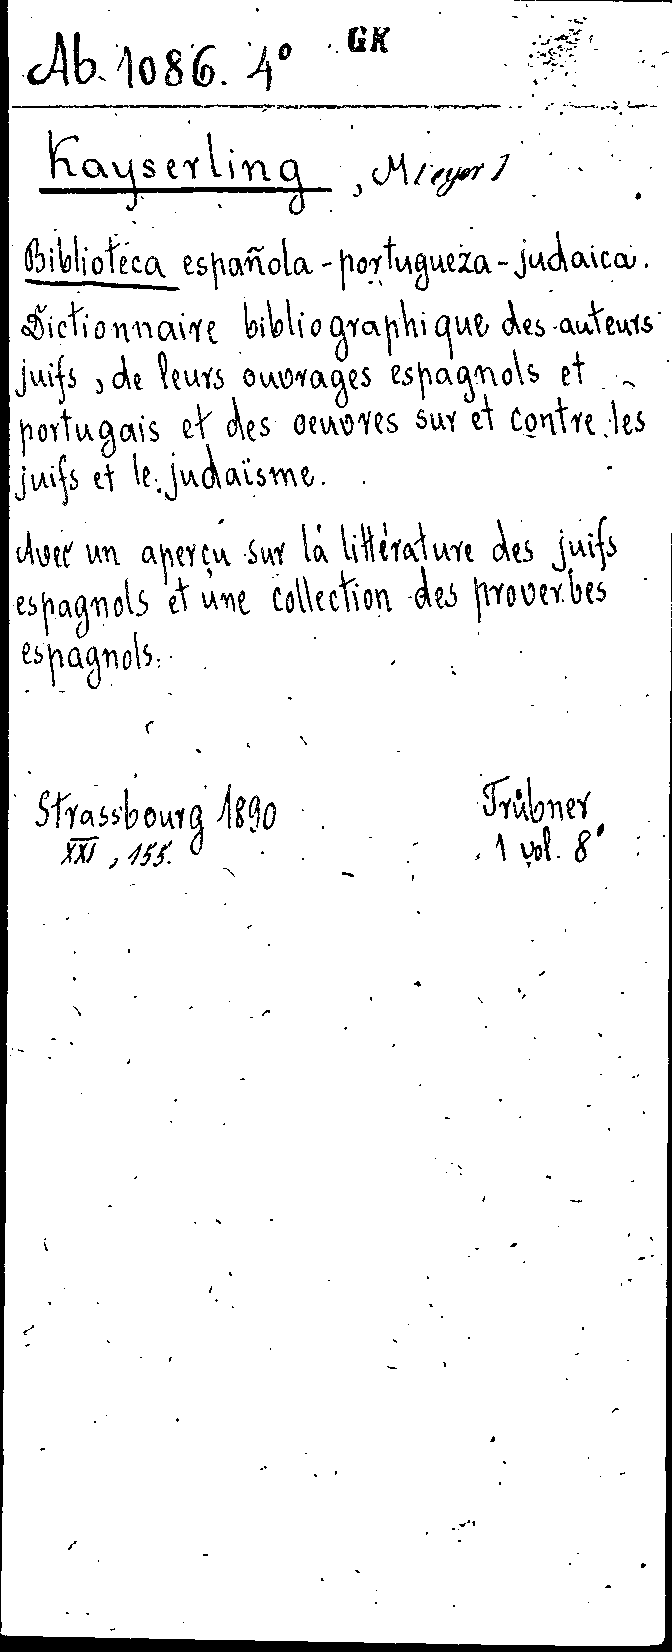 Ab. 1086. 4° GK
Kayserling, M[eyer]
Biblioteca española-portugueza-judaica.
Dictionnaire bibliographique des auteurs
juifs, de leurs ouvrages espagnols et
portugais et des oeuvres sur et contre les
juifs et le judaïsme.
Avec un aperçu sur la littérature des juifs
espagnols et une collection des proverbes
espagnols.
Strassbourg 1890 Trübner
XXI, 155. 1 vol. 8°